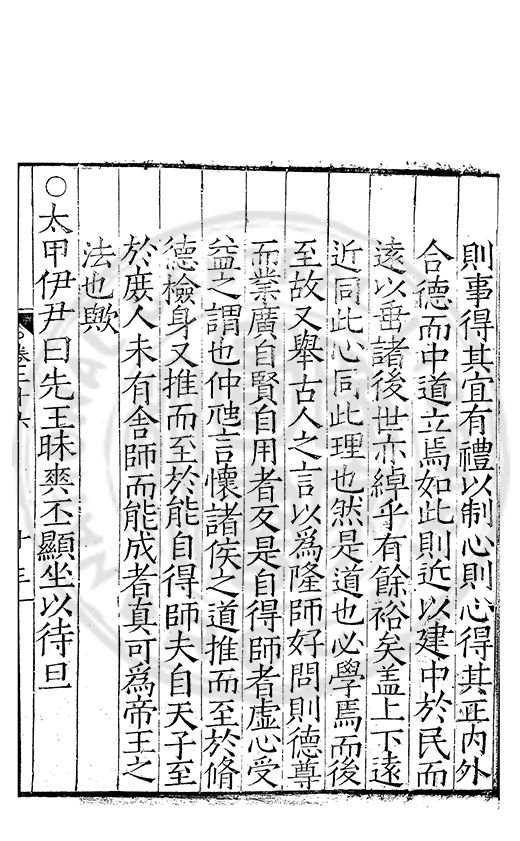 則事得其宜有禮以制心則心得其正内外
合德而中道立焉如此則近以建中於民而
遠以垂諸後世亦綽乎有餘裕矣盖上下遠
近同此心同此理也然是道也必學焉而後
至故又舉古人之言以爲隆師好問則德尊
而業廣自賢自用者反是自得師者虛心受
益之謂也仲虺言懷諸侯之道推而至於脩
德檢身又推而至於能自得師夫自天子至
於庶人未有舍師而能成者真可爲帝王之
法也歟
○太甲伊尹曰先王昧爽丕顯坐以待旦
卷二十六
十三